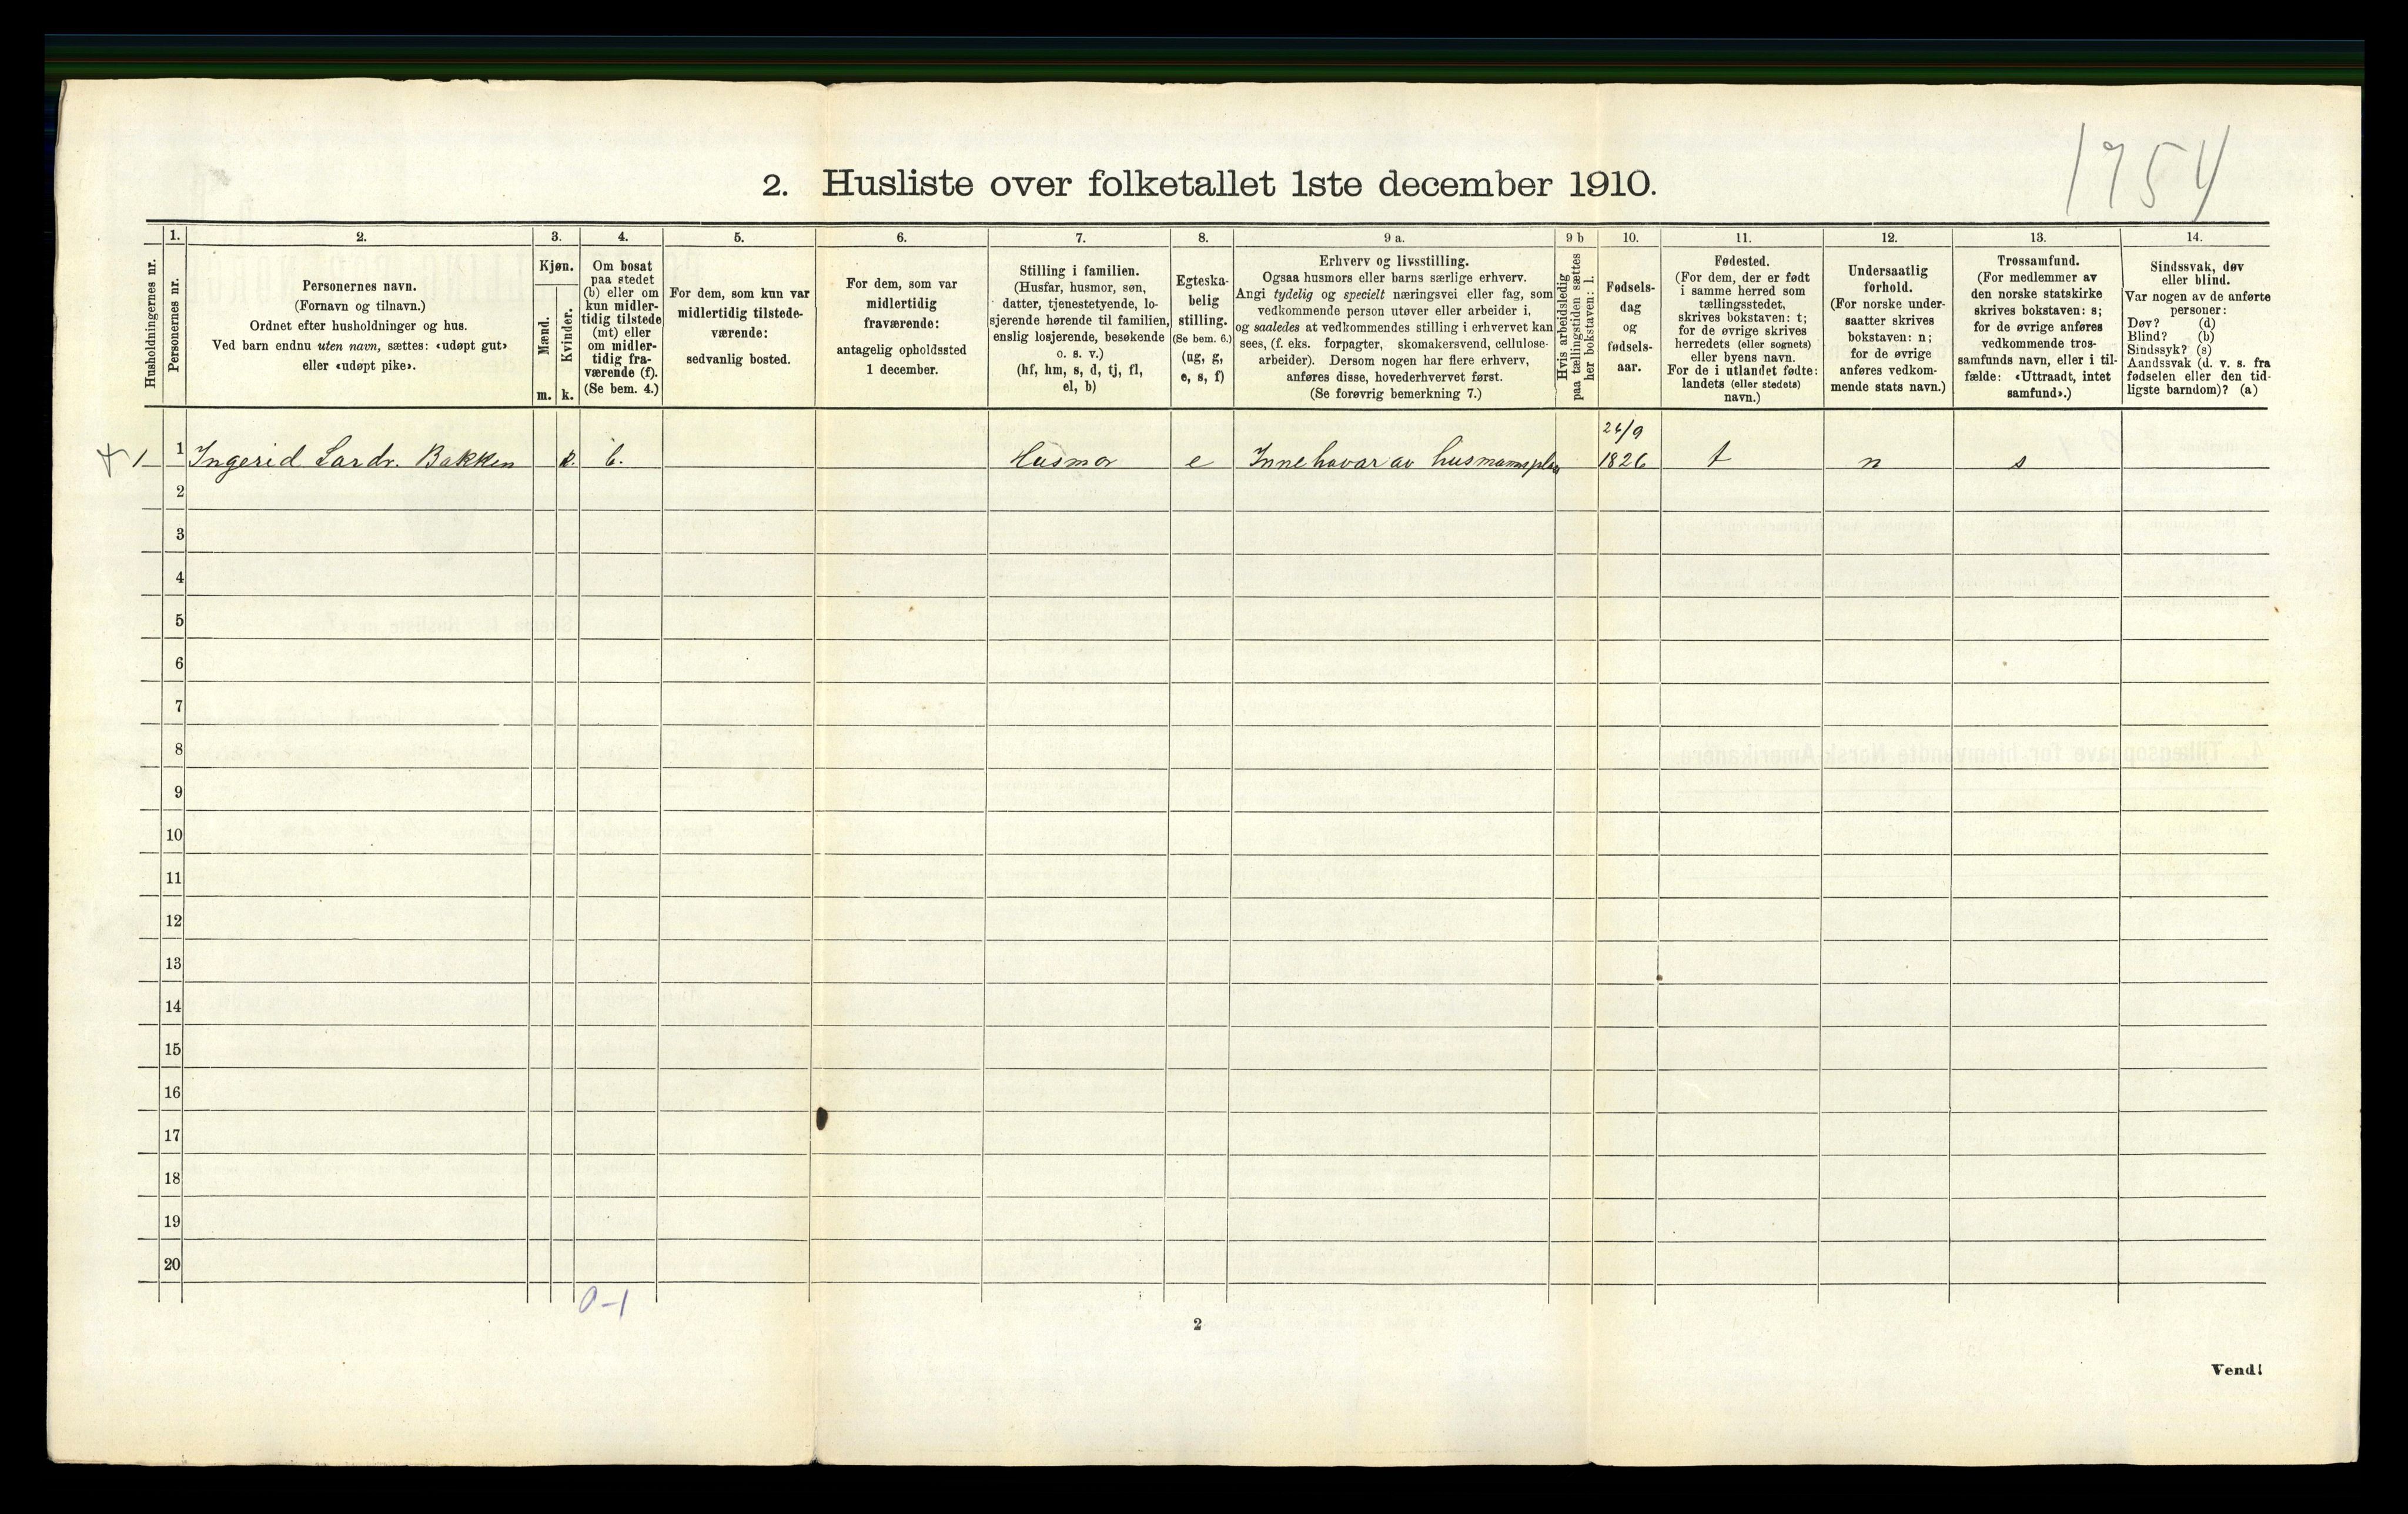 1954
2. Husliste over folketallet 1ste december 1910.
Husholdningernes nr.
1.
Personernes nr.
2.
Personernes navn.
(Fornavn og tilnavn.)
Ordnet efter husholdninger og hus.
Ved barn endnu uten navn, sættes: «udøpt gut»
eller «udøpt pike».
3.
Kjøn.
Mænd.
Kvinder.
m. k.
4.
Om bosat
paa stedet
(b) eller om
kun midler-
tidig tilstede
(mt) eller
om midler-
tidig fra-
værende (f).
(Se bem. 4.)
5.
For dem, som kun var
midlertidig tilstede-
værende:
sedvanlig bosted.
6.
For dem, som var
midlertidig
fraværende:
antagelig opholdssted
1 december.
7.
Stilling i familien.
(Husfar, husmor, søn,
datter, tjenestetyende, lo-
sjerende hørende til familien,
enslig losjerende, besøkende
o. s. v.)
(hf, hm, s, d, tj, fl,
el, b)
8.
Egteska-
belig
stilling.
(Se bem. 6.)
(ug, g,
e, s, f)
9 a.
Erhverv og livsstilling.
Ogsaa husmors eller barns særlige erhverv.
Angi tydelig og specielt næringsvei eller fag, som
vedkommende person utøver eller arbeider i,
og saaledes at vedkommendes stilling i erhvervet kan
sees, (f. eks. forpagter, skomakersvend, cellulose-
arbeider). Dersom nogen har flere erhverv,
anføres disse, hovederhvervet først.
(Se forøvrig bemerkning 7.)
9 b
Hvis arbeidsledig
paa tællingstiden sættes
her bokstaven: l.
10.
Fødsels-
dag
og
fødsels-
aar.
11.
Fødested.
(For dem, der er født
i samme herred som
tællingsstedet,
skrives bokstaven: t;
for de øvrige skrives
herredets (eller sognets)
eller byens navn.
For de i utlandet fødte:
landets (eller stedets)
navn.)
12.
Undersaatlig
forhold.
(For norske under-
saatter skrives
bokstaven: n;
for de øvrige
anføres vedkom-
mende stats navn.)
13.
Trossamfund.
(For medlemmer av
den norske statskirke
skrives bokstaven: s;
for de øvrige anføres
vedkommende tros-
samfunds navn, eller i til-
fælde: «Uttraadt, intet
samfund».)
14.
Sindssvak, døv
eller blind.
Var nogen av de anførte
personer:
Døv? (d)
Blind? (b)
Sindssyk? (s)
Aandssvak (d. v. s. fra
fødselen eller den tid-
ligste barndom)? (a)
1 1 Ingerid Lardr. Bakken k. b. Husmor e Innehavar av husmannsplas 24/9 1826 t n s
2
3
4
5
6
7
8
9
10
11
12
13
14
15
16
17
18
19
20
0-1
2
Vend!